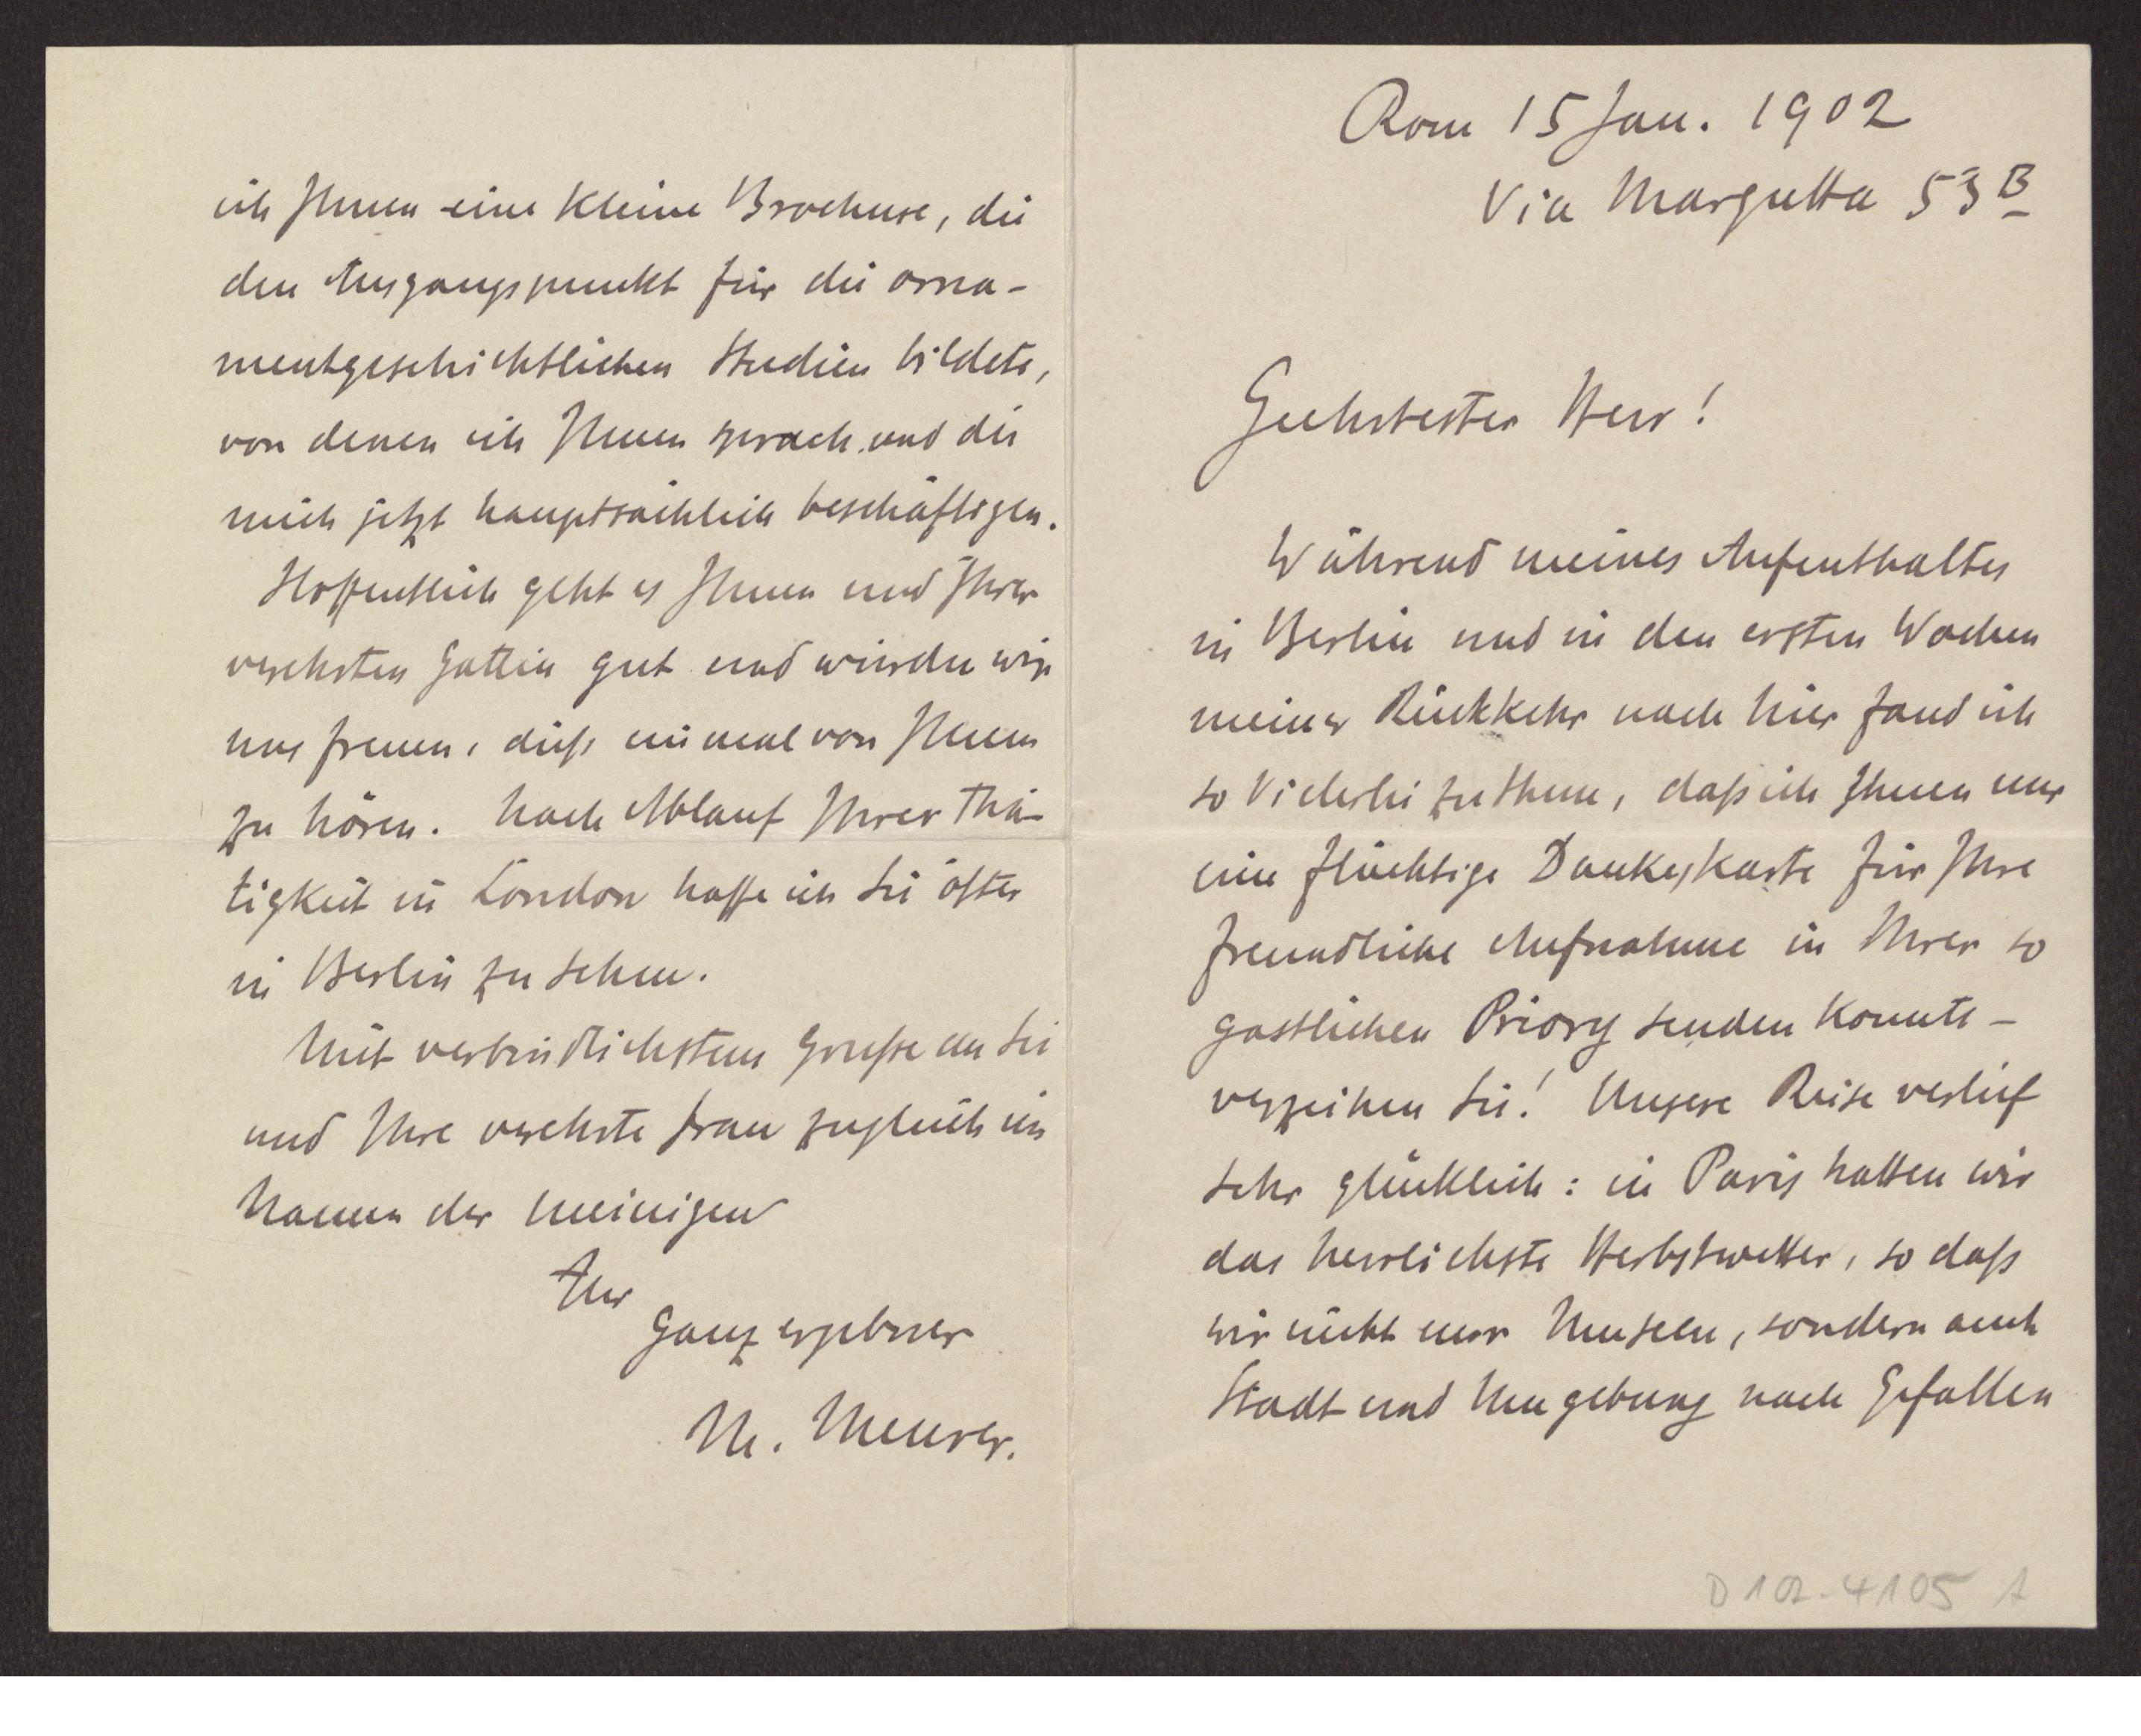 Rom 15 Jan. 1902
Via Margutta 53 B
Geehrtester Herr!
Während meines Aufenthaltes
in Berlin und in den ersten Wochen
meiner Rückkehr nach hier fand ich
so Vielerlei zu thun, daß ich Ihnen nur
eine flüchtige Dankeskarte für Ihre
freundliche Aufnahme in Ihrer so
gastlichen Priory senden konnte –
verzeihen Sie! Unsere Reise verlief
sehr glücklich: in Paris hatten wir
das herrlichste Herbstwetter, so daß
wir nicht nur Museen, sondern auch
Stadt und Umgebung nach Gefallen
D 102-4105 A
ich Ihnen eine kleine Brochure, die
den Ausgangspunkt für die orna-
mentgeschichtlichen Studien bildete,
von denen ich Ihnen sprach und die
mich jetzt hauptsächlich beschäftigen.
Hoffentlich geht es Ihnen und Ihrer
verehrten Gattin gut und würden wir
uns freuen, dieß einmal von Ihnen
zu hören. Nach Ablauf Ihrer Thä-
tigkeit in London hoffe ich Sie öfter
in Berlin zu sehen.
Mit verbindlichstem Gruße an Sie
und Ihre verehrte Frau zugleich im
Namen der meinigen
Ihr
ganz ergebener
M. Meurer.